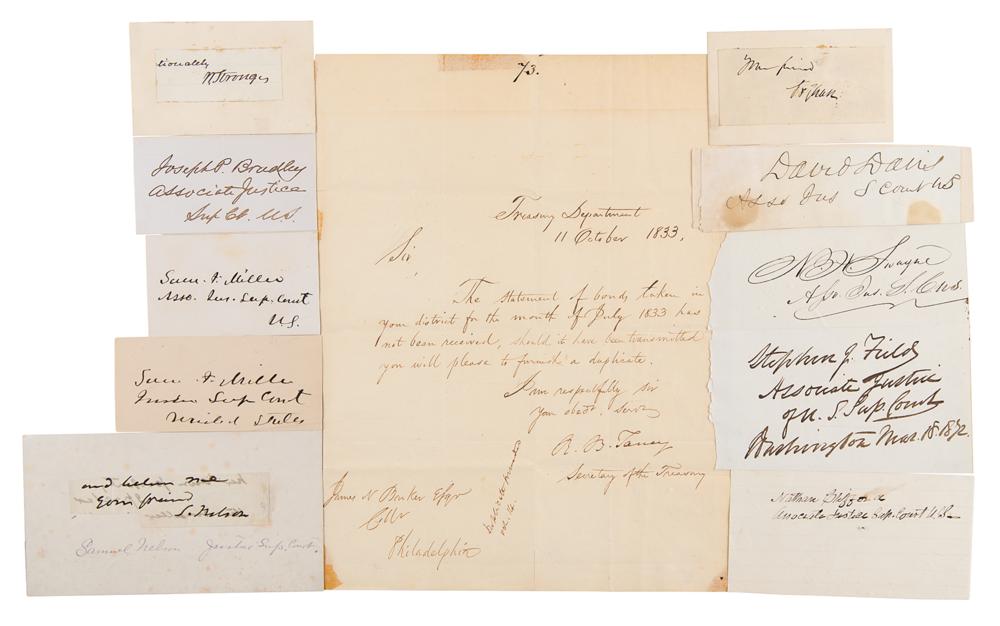 tionately
W Strong
Joseph P. Bradley
Associate Justice
Sup Ct. U.S.
Sam F. Miller
Asso. Jus. Sup. Court
U.S.
Sam F. Miller
Justice Sup Court
United States
and believe me
Your friend
S. Nelson
Samuel Nelson Justice Sup. Court.
73.
Treasury Department
11 October 1833.
Sir
The statement of bonds taken in
your district for the month of July 1833 has
not been received, should it have been transmitted
you will please to furnish a duplicate.
I am respectfully sir
Your obedt. Servt
R. B. Taney
Secretary of the Treasury
James N. Barker Esqr
Collr
Philadelphia
Your friend
David Davis
Asso Jus S Court US
N. H. Swayne
Asso. Jus. S. C. U.S.
Stephen J. Field
Associate Justice
of U. S. Sup. Court
Washington Mar. 18. 1872.
Nathan Clifford
Associate Justice Sup. Court U.S.